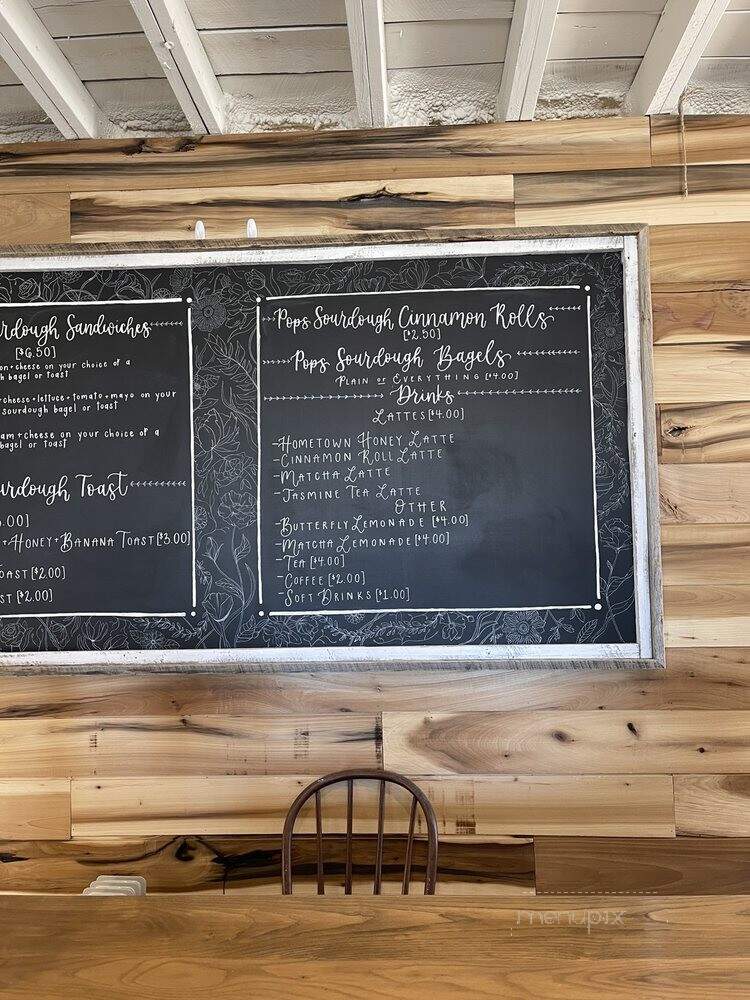 Sandwiches
[$6.50]
+cheese on your choice of a
bagel or toast
+cheese+lettuce+tomato+mayo on your
sourdough bagel or toast
+cheese on your choice of a
bagel or toast
Toast
+Honey+Banana Toast [$3.00]
[$2.00]
[$2.00]
Pops Sourdough Cinnamon Rolls
[$2.50]
Pops Sourdough Bagels
Plain or Everything [$4.00]
Drinks
Lattes [$4.00]
-Hometown Honey Latte
-Cinnamon Roll Latte
-Matcha Latte
-Jasmine Tea Latte
Other
-Butterfly Lemonade [$4.00]
-Matcha Lemonade [$4.00]
-Tea [$4.00]
-Coffee [$2.00]
-Soft Drinks [$1.00]
menupix